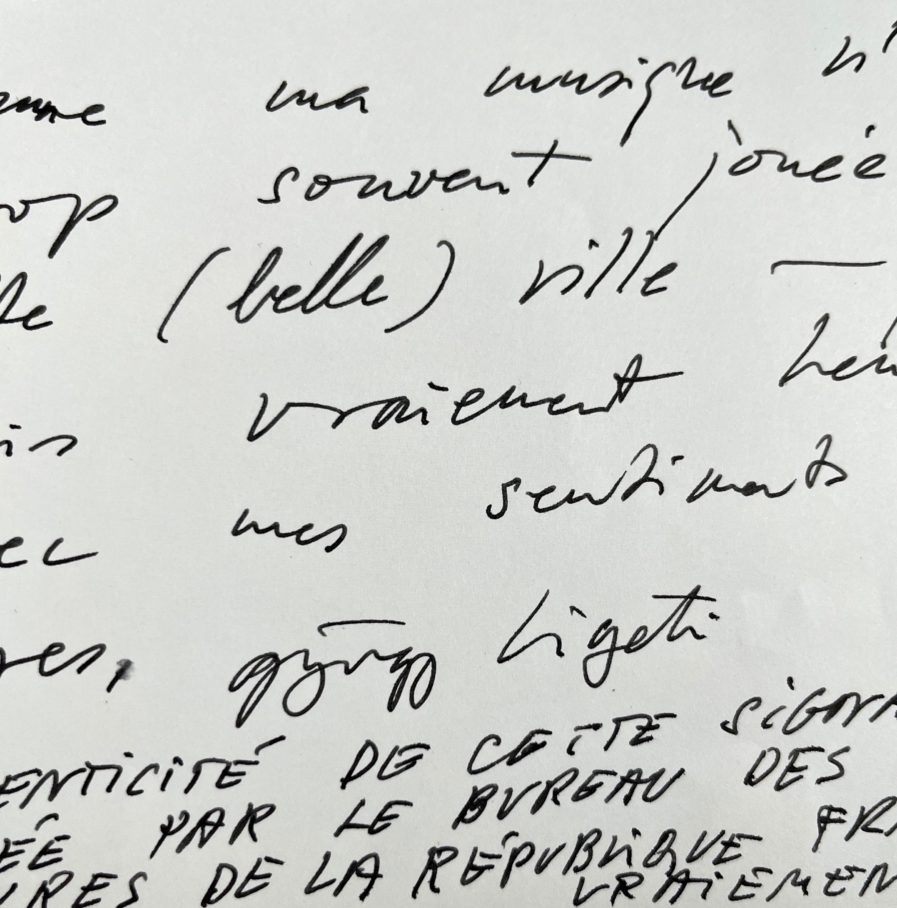 ma musique n'
op souvent jouée
(belle) ville —
is vraiment
ec mes sentiments
györgy Ligeti
ENTICITÉ DE CETTE SIGNA
ÉE PAR LE BUREAU DES
RES DE LA RÉPUBLIQUE FRA
VRAIEMEN